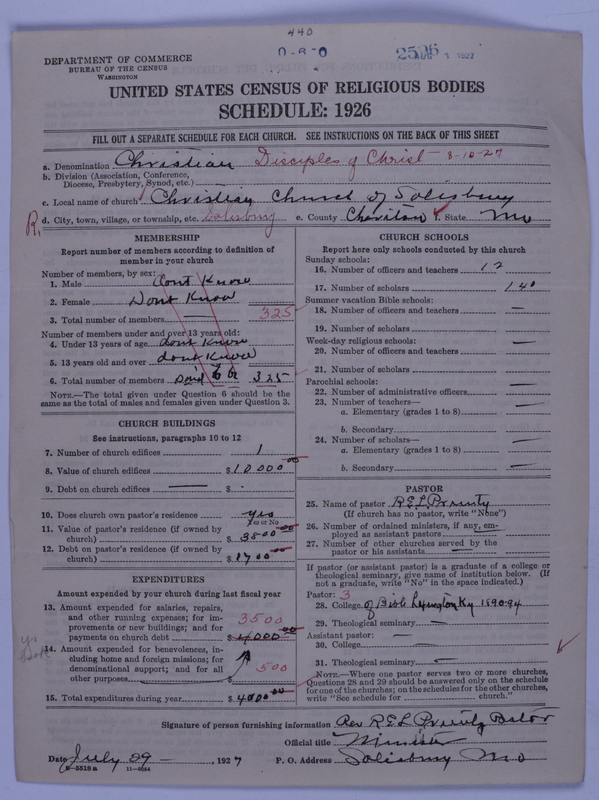 440
DEPARTMENT OF COMMERCE
BUREAU OF THE CENSUS
WASHINGTON
UNITED STATES CENSUS OF RELIGIOUS BODIES
SCHEDULE: 1926
FILL OUT A SEPARATE SCHEDULE FOR EACH CHURCH. SEE INSTRUCTIONS ON THE BACK OF THIS SHEET
a. Denomination Christian Disciples of Christ - 8-10-27
b. Division (Association, Conference,
Diocese, Presbytery, Synod, etc.)
c. Local name of church Christian Church of Salisbury
R. d. City, town, village, or township, etc. Salisbury e. County Chariton f. State Mo
MEMBERSHIP
Report number of members according to definition of
member in your church
Number of members, by sex:
1. Male Dont Know
2. Female Dont Know
3. Total number of members 325
Number of members under and over 13 years old:
4. Under 13 years of age dont Know
5. 13 years old and over dont Know
6. Total number of members 325
NOTE.—The total given under Question 6 should be the
same as the total of males and females given under Question 3.
CHURCH BUILDINGS
See instructions, paragraphs 10 to 12
7. Number of church edifices 1
8. Value of church edifices $10000 00
9. Debt on church edifices — $
10. Does church own pastor's residence yes
Yes or No
11. Value of pastor's residence (if owned by
church) $3500 00
12. Debt on pastor's residence (if owned by
church) $1700 00
EXPENDITURES
Amount expended by your church during last fiscal year
13. Amount expended for salaries, repairs,
and other running expenses; for im-
provements or new buildings; and for
payments on church debt 3500 $4000 00
14. Amount expended for benevolences, in-
cluding home and foreign missions; for
denominational support; and for all
other purposes $ 500
15. Total expenditures during year $4000 00
CHURCH SCHOOLS
Report here only schools conducted by this church
Sunday schools:
16. Number of officers and teachers 12
17. Number of scholars 140
Summer vacation Bible schools:
18. Number of officers and teachers —
19. Number of scholars
Week-day religious schools: —
20. Number of officers and teachers
21. Number of scholars —
Parochial schools: —
22. Number of administrative officers
23. Number of teachers— —
a. Elementary (grades 1 to 8)
b. Secondary —
24. Number of scholars— —
a. Elementary (grades 1 to 8)
b. Secondary —
PASTOR
25. Name of pastor R E L Prunty
(If church has no pastor, write "None")
26. Number of ordained ministers, if any, em-
ployed as assistant pastors
27. Number of other churches served by the
pastor or his assistants —
If pastor (or assistant pastor) is a graduate of a college or
theological seminary, give name of institution below. (If
not a graduate, write "No" in the space indicated.)
Pastor: 3
28. College of Bible Lexington Ky 1890-94
29. Theological seminary —
Assistant pastor: —
30. College
31. Theological seminary —
NOTE.—Where one pastor serves two or more churches,
Questions 28 and 29 should be answered only on the schedule
for one of the churches; on the schedules for the other churches,
write "See schedule for church."
Signature of person furnishing information Rev R E L Prunty Pastor
Official title Minister
Date July 29 —, 1927 P. O. Address Salisbury Mo